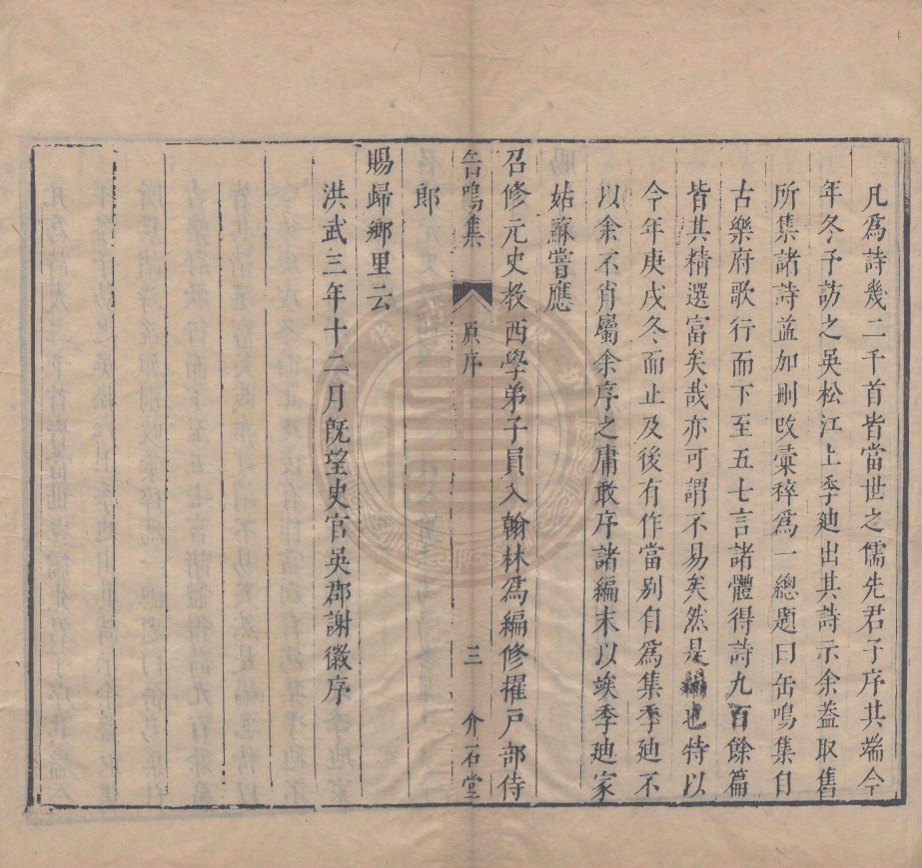 凡爲詩幾二千首皆當世之儒先君子序其端今
年冬予訪之吳松江上季廸出其詩示余葢取舊
所集諸詩葢加刪改彙稡爲一總題曰缶鳴集自
古樂府歌行而下至五七言諸體得詩九百餘篇
皆其精選富矣哉亦可謂不易矣然是編也特以
今年庚戌冬而止及後有作當别自爲集季廸不
以余不肖屬余序之庸敢序諸編末以竢季廸家
姑蘇嘗應
召修元史教西學弟子員入翰林爲編修擢戸部侍
缶鳴集 原序 三 介石堂
郎
賜歸鄉里云
洪武三年十二月旣望史官吳郡謝徽序